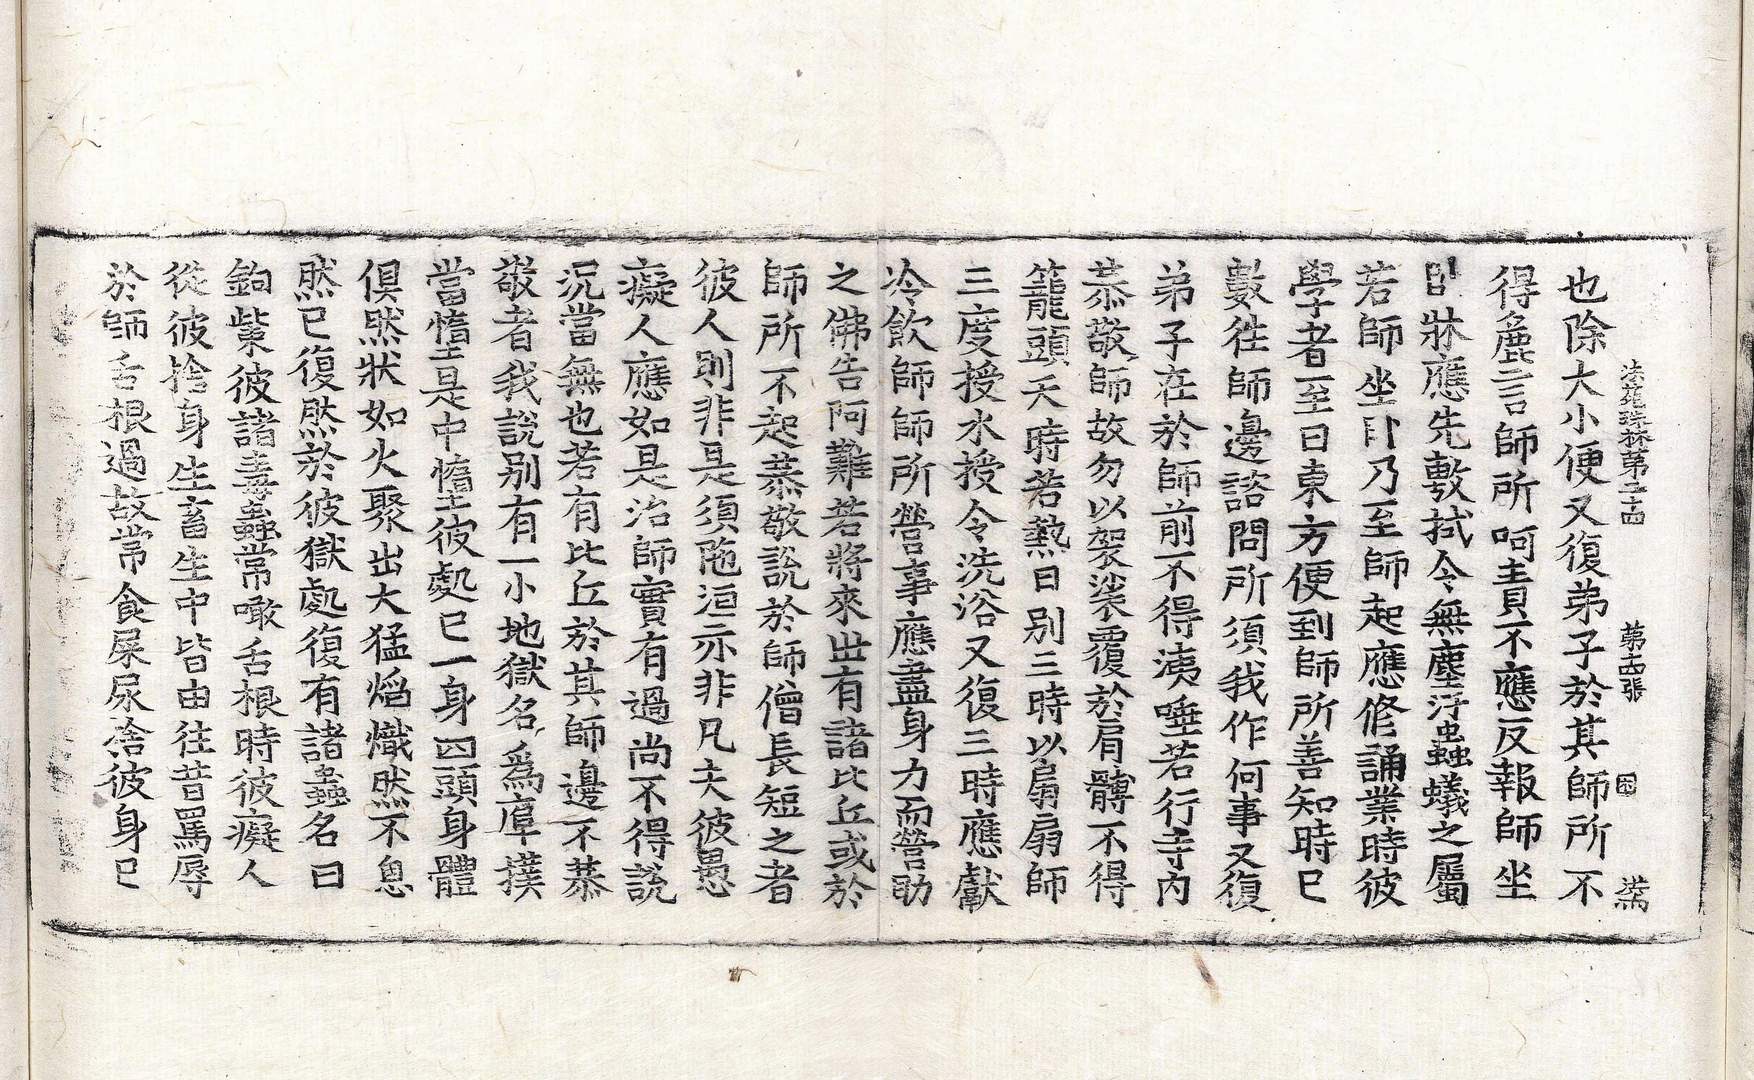 法苑珠林第二十四　第十五張
也除大小便又復弟子於其師所不
得麁言師所呵責不應反報師坐
臥牀應先敷拭令無塵浮蟲蟻之屬
若師坐臥乃至師起應修誦業時彼
學者至日東方便到師所善知時已
數徃師邊諮問所須我作何事又復
弟子在於師前不得洟唾若行寺內
恭敬師故勿以袈裟覆於肩髆不得
籠頭天時若熱日別三時以扇扇師
三度授水授令洗浴又復三時應獻
冷飲師師所營事應盡身力而營助
之佛告阿難若將來世有諸比丘或於
師所不起恭敬說於師僧長短之者
彼人則非是須陁洹亦非凡夫彼愚
癡人應如是治師實有過尚不得說
況當無也若有比丘於其師邊不恭
敬者我說別有一小地獄名爲䭔撲
當墮是中墮彼處已一身四頭身體
俱然狀如火聚出大猛焰熾然不息
然已復然於彼獄處復有諸蟲名曰
鉤觜彼諸毒蟲常噉舌根時彼癡人
從彼捨身生畜生中皆由往昔罵辱
於師舌根過故常食屎尿捨彼身已